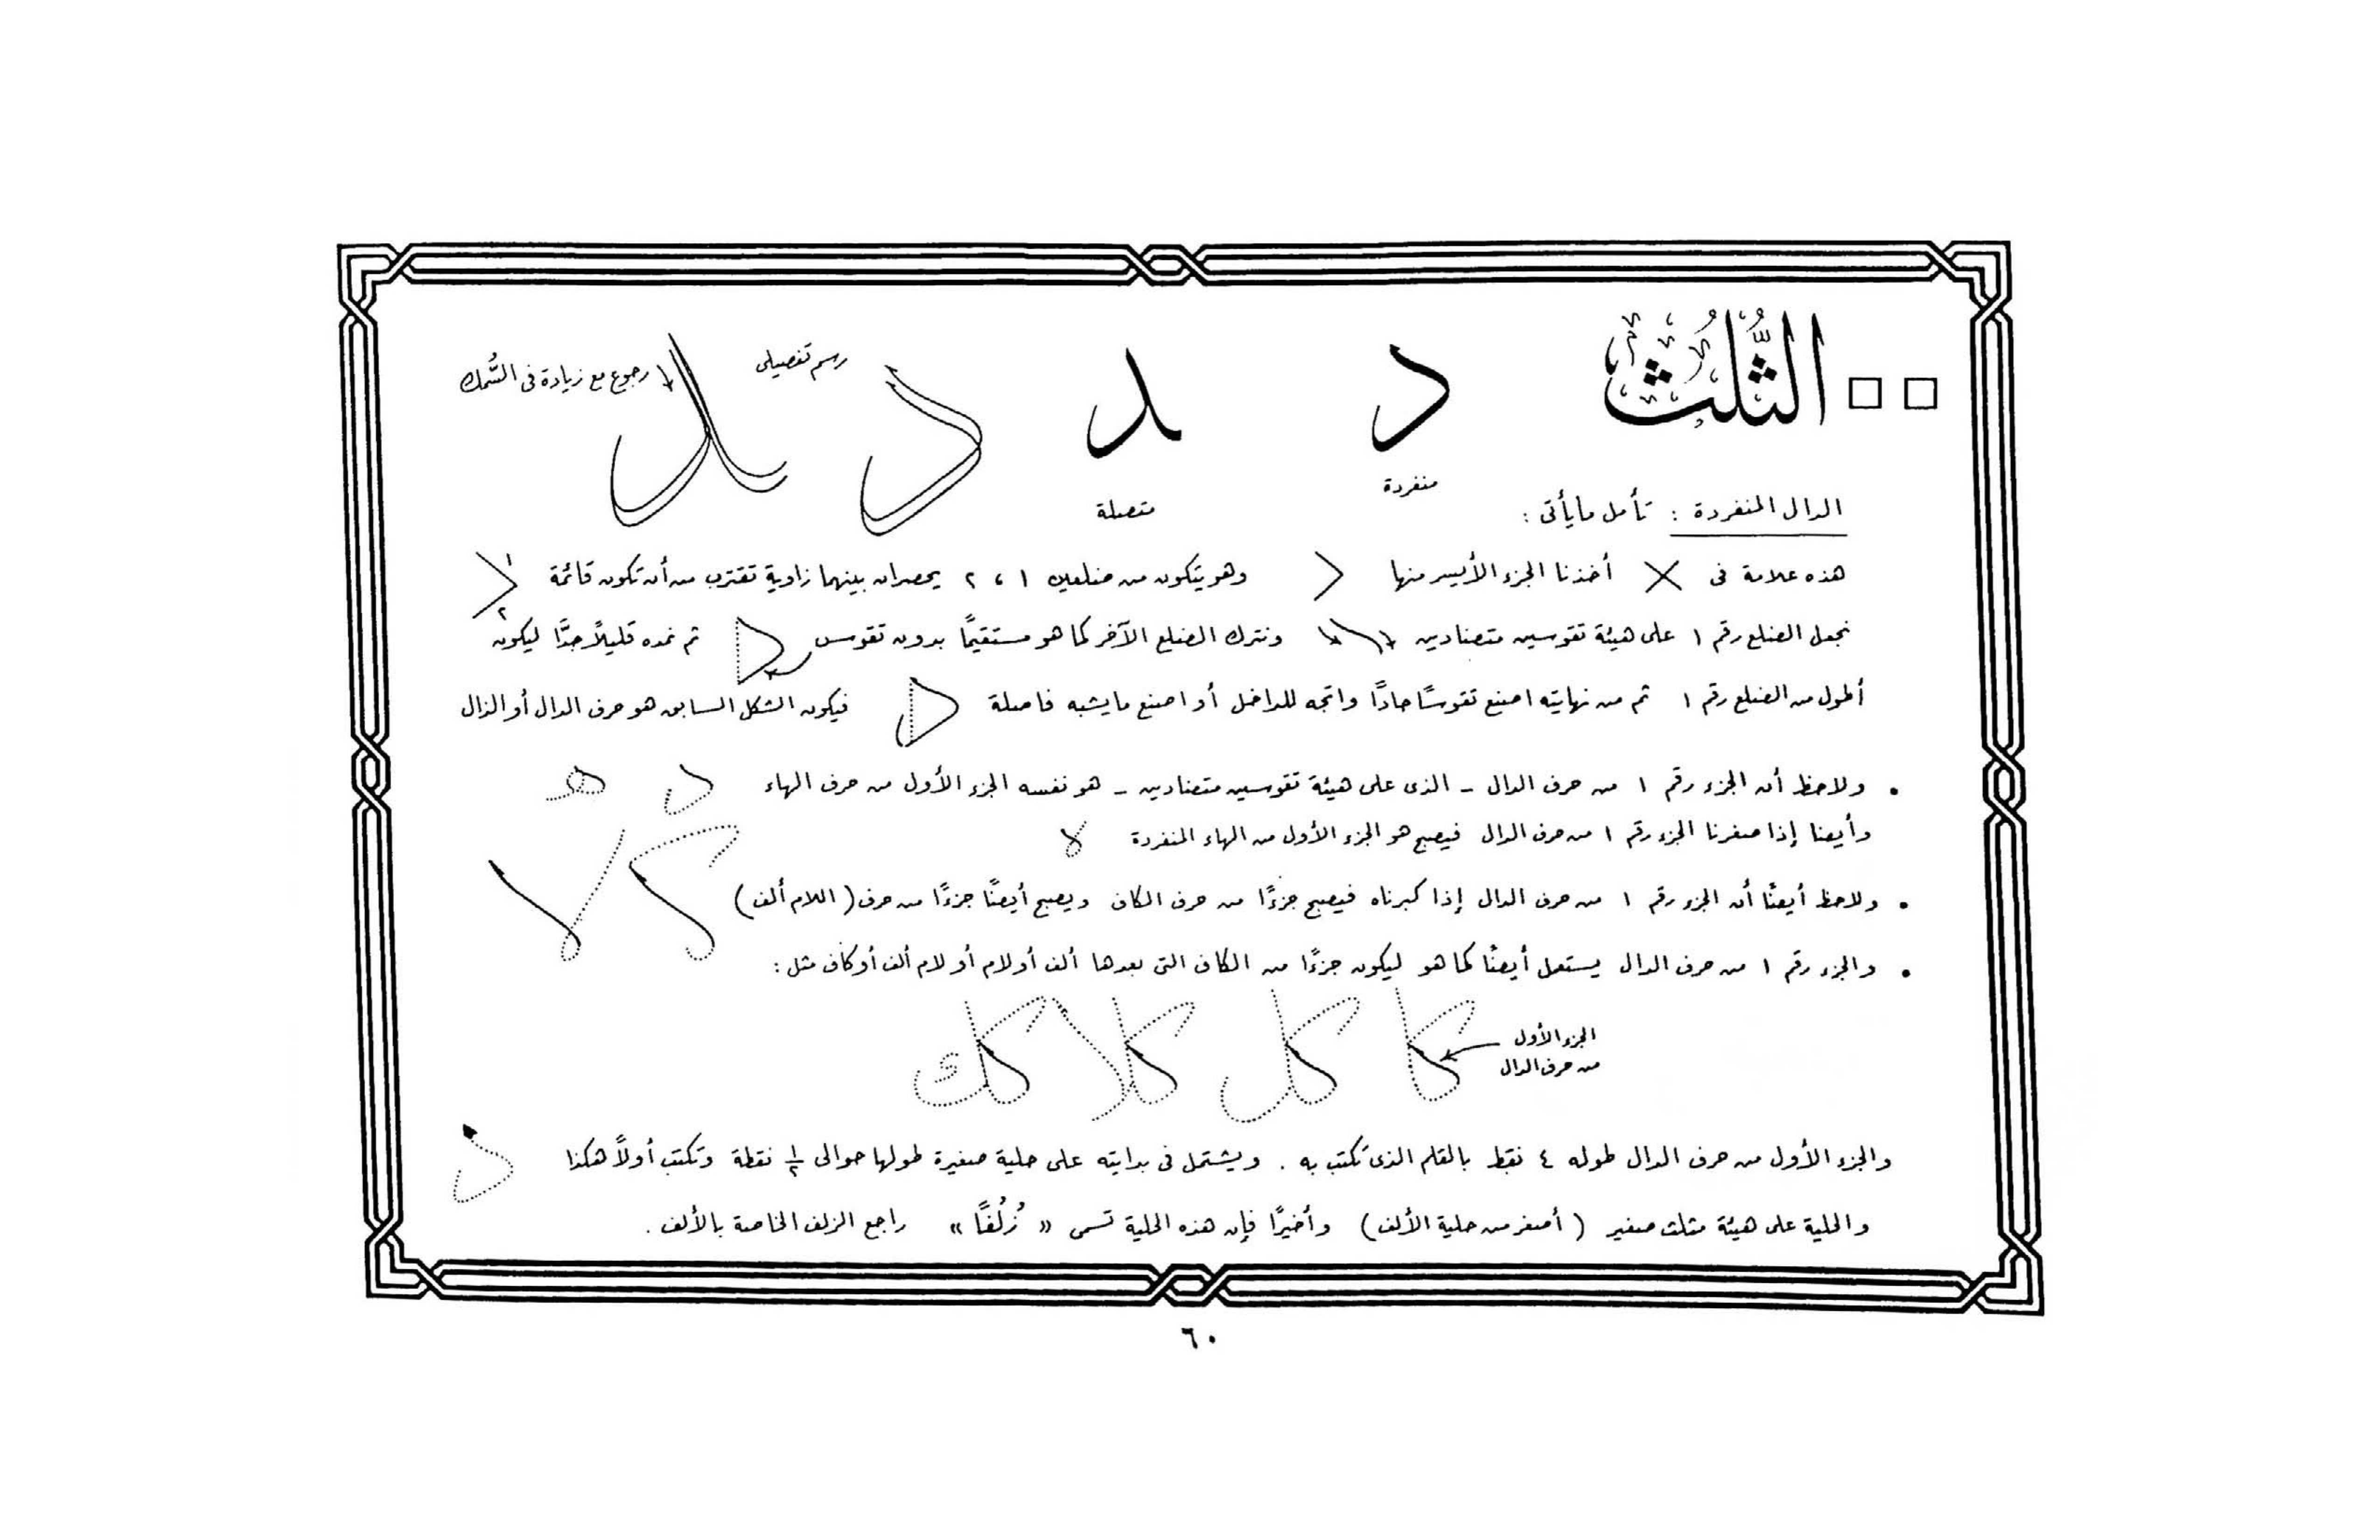 الثُّلُث
د
د
رسم تفصيلى
رجوع مع زيادة فى السُّمك
منفردة
متصلة
الدال المنفردة : تأمل مايأتى :
هذه علامة فى × أخذنا الجزء الأيسر منها وهو يتكون من ضلعين ١ ، ٢ يحصران بينهما زاوية تقترب من أن تكون قائمة ١ ٢
نجعل الضلع رقم ١ على هيئة تقوسين متضادين ونترك الضلع الآخر كما هو مستقيمًا بدون تقوس ثم نمده قليلاً جدًّا ليكون
أطول من الضلع رقم ١ ثم من نهايته اصنع تقوسًا حادًا واتجه للداخل أو اصنع مايشبه فاصلة فيكون الشكل السابق هو حرف الدال أو الذال
• ولاحظ أن الجزء رقم ١ من حرف الدال - الذى على هيئة تقوسين متضادين - هو نفسه الجزء الأول من حرف الهاء د هـ
وأيضا إذا صغرنا الجزء رقم ١ من حرف الدال فيصبح هو الجزء الأول من الهاء المنفردة
• ولاحظ أيضًا أن الجزء رقم ١ من حرف الدال إذا كبرناه فيصبح جزءًا من حرف الكاف ويصبح أيضًا جزءًا من حرف ( اللام ألف )
• والجزء رقم ١ من حرف الدال يستعمل أيضًا كما هو ليكون جزءًا من الكاف التى بعدها ألف أو لام أو لام ألف أو كاف مثل :
كا كل كلا كك
الجزء الأول
من حرف الدال
والجزء الأول من حرف الدال طوله ٤ نقط بالقلم الذى تكتب به . ويشتمل فى بدايته على حلية صغيرة طولها حوالى ١/٢ نقطة وتكتب أولاً هكذا د
والحلية على هيئة مثلث صغير ( أصغر من حلية الألف ) وأخيرًا فإن هذه الحلية تسمى « زُلُفًا » راجع الزلف الخاصة بالألف .
٦٠